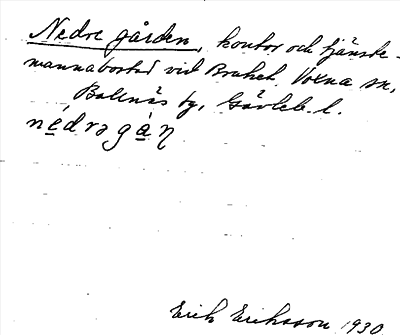 Nedre gården, kontor och tjänste-
mannabostad vid Bruket. Voxna sn,
Bollnäs tg, Gävleb. l.
nédrəgà̱ṇ
Erik Eriksson 1930